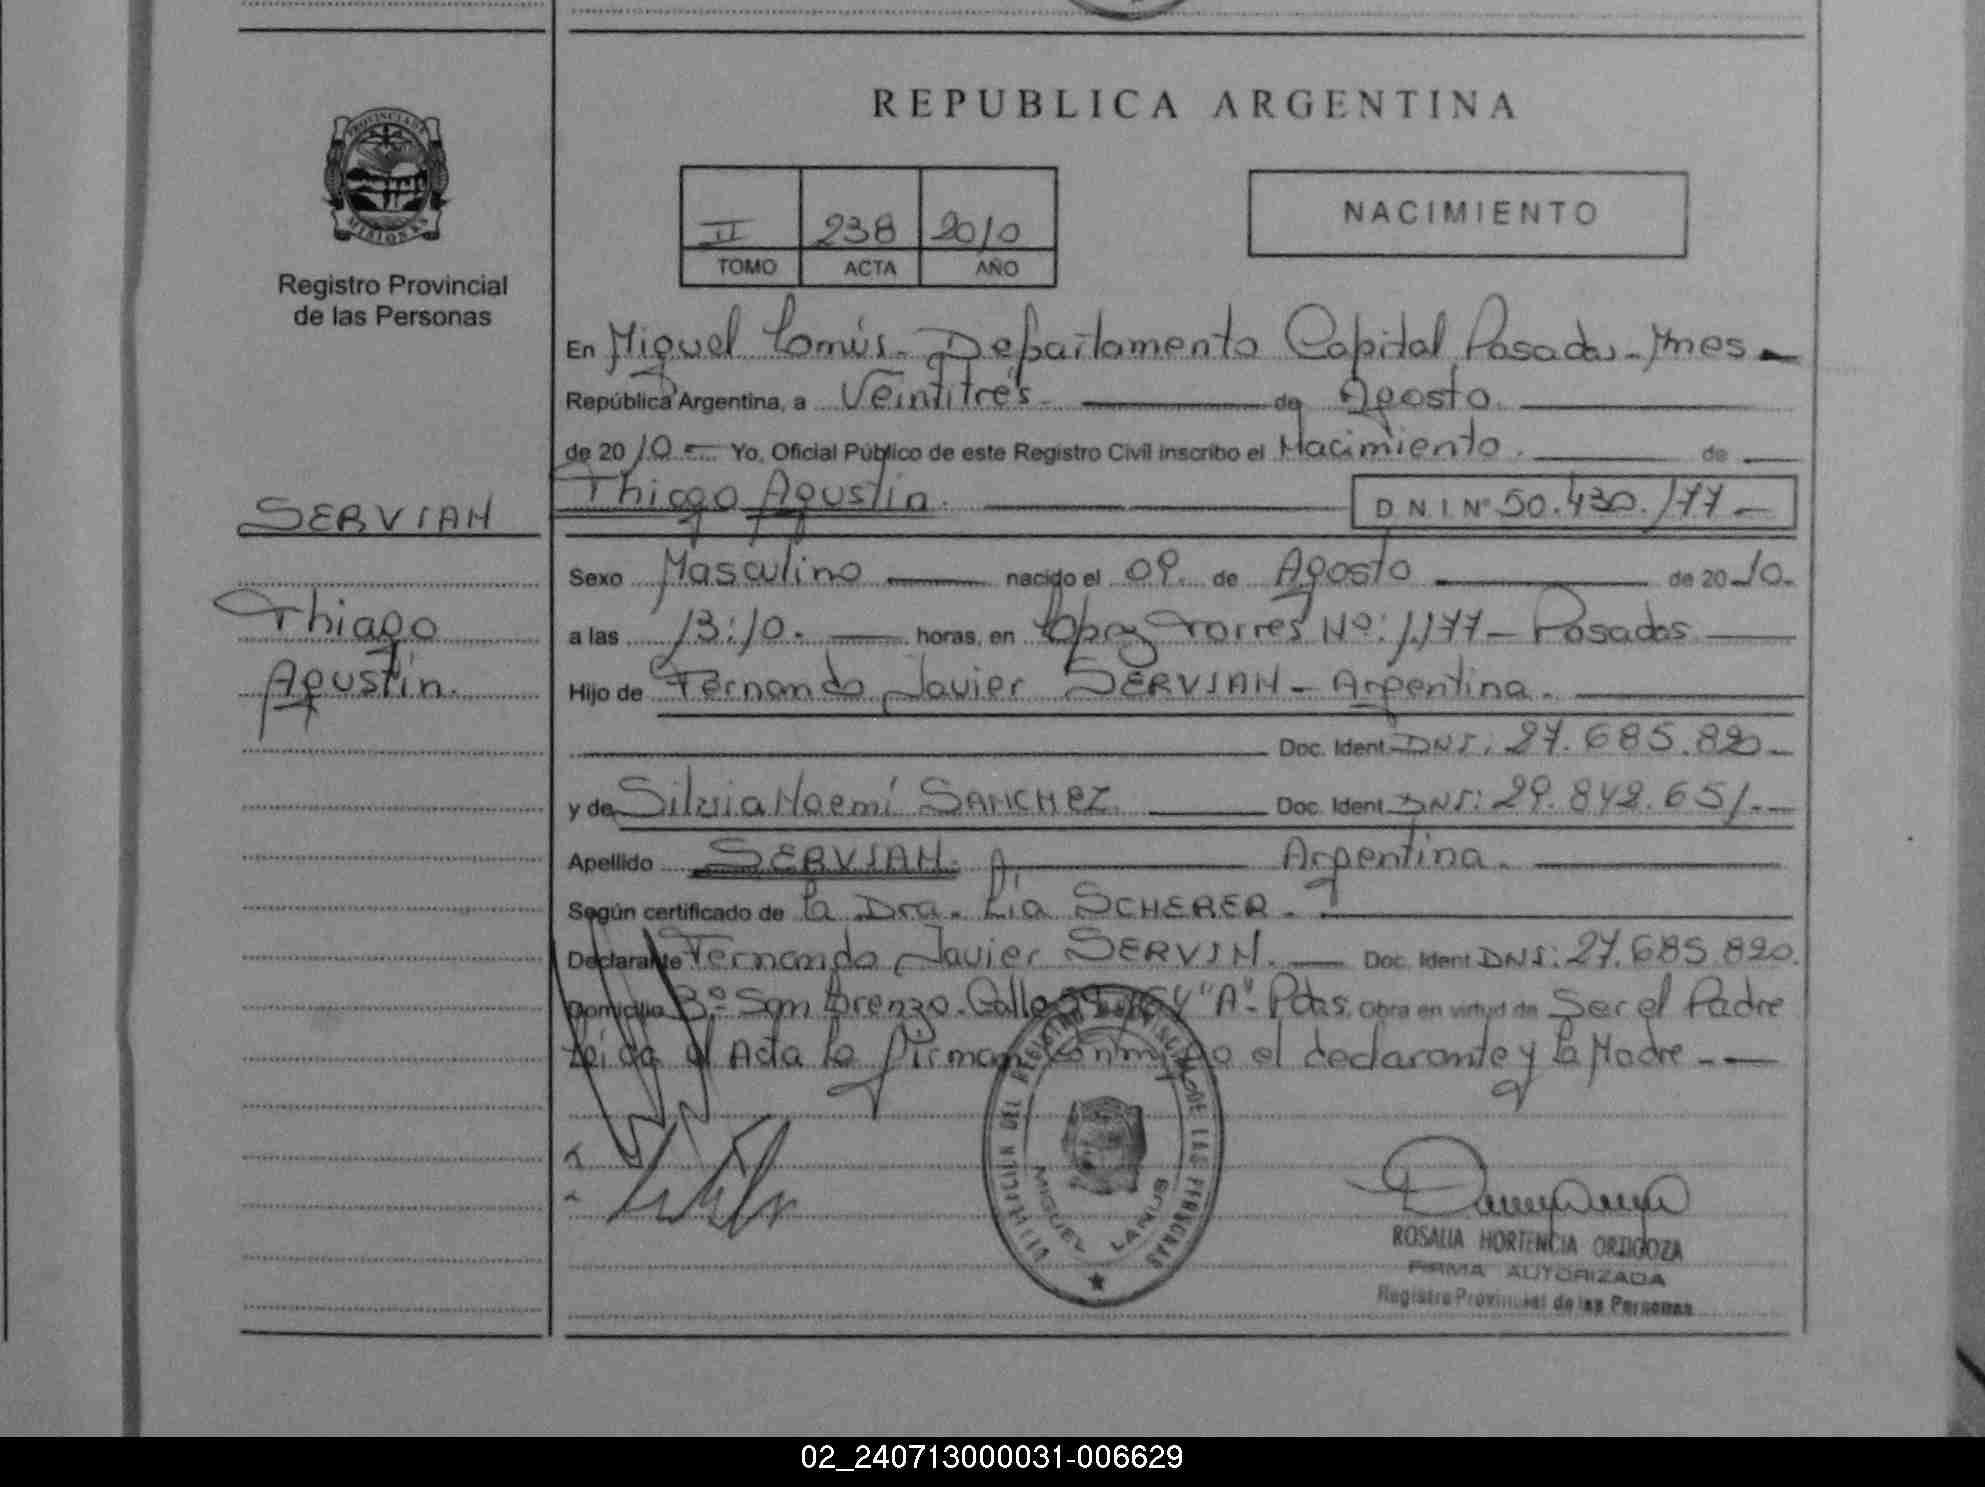 REPUBLICA ARGENTINA
PROVINCIA DE
MISIONES
Registro Provincial
de las Personas
II 238 2010
TOMO ACTA AÑO
NACIMIENTO
En Miguel Lanús. Departamento Capital Posadas - Mnes
República Argentina, a Veintitrés de Agosto.
de 2010 Yo, Oficial Público de este Registro Civil inscribo el Nacimiento. de
Thiago Agustín. D.N.I. Nº 50.430.177
SERVIAN
Thiago
Agustín.
Sexo Masculino nacido el 09. de Agosto de 2010.
a las 13:10. horas, en López Torres Nº: 1.177 - Posadas
Hijo de Fernando Javier SERVIAN - Argentina.
Doc. Ident. DNI: 27.685.820
y de Silvia Noemí SANCHEZ Doc. Ident. DNI: 29.842.651.
Apellido SERVIAN. Argentina.
Según certificado de la Dra. Lía SCHERER.
Declarante Fernando Javier SERVIN. Doc. Ident. DNI: 27.685.820.
Domicilio Bº San Lorenzo. Calle "A" - Pdas. Obra en virtud de Ser el Padre
Leída el Acta la firman conmigo el declarante y la Madre
REGISTRO PROVINCIAL DE LAS PERSONAS
MIGUEL LANUS
ROSALIA HORTENCIA ORDGOZA
FIRMA AUTORIZADA
Registro Provincial de las Personas
02_240713000031-006629